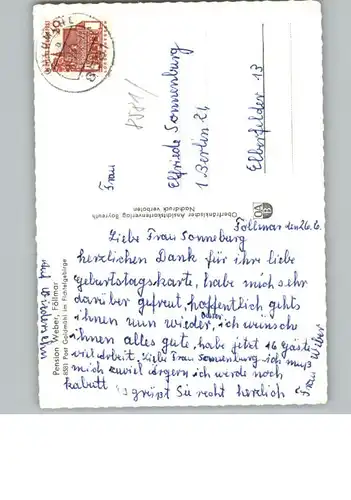 Follmar den 26.6.
Liebe Frau Sonneburg
herzlichen Dank für ihr liebe
geburtstagskarte, habe mich sehr
darüber gefreut, hoffentlich gehts
ihnen nun wieder, ich wunsch
ihnen alles gute, habe jetzt 16 Gäste
viel arbeit, Liebe Frau Sonnenburg ich muß
mich zuviel ärgern ich werde noch
kabutt
es grüßt Sie recht herzlich
Frau Weber
auf wiedersehn
Pension Weber, Föllmar
8581 Post Goldmühl im Fichtelgebirge
Oberfränkischer Ansichtskartenverlag Bayreuth
Nachdruck verboten
8581/
Frau
Elfriede Sonnenburg
1 Berlin 21
Elberfelder 13